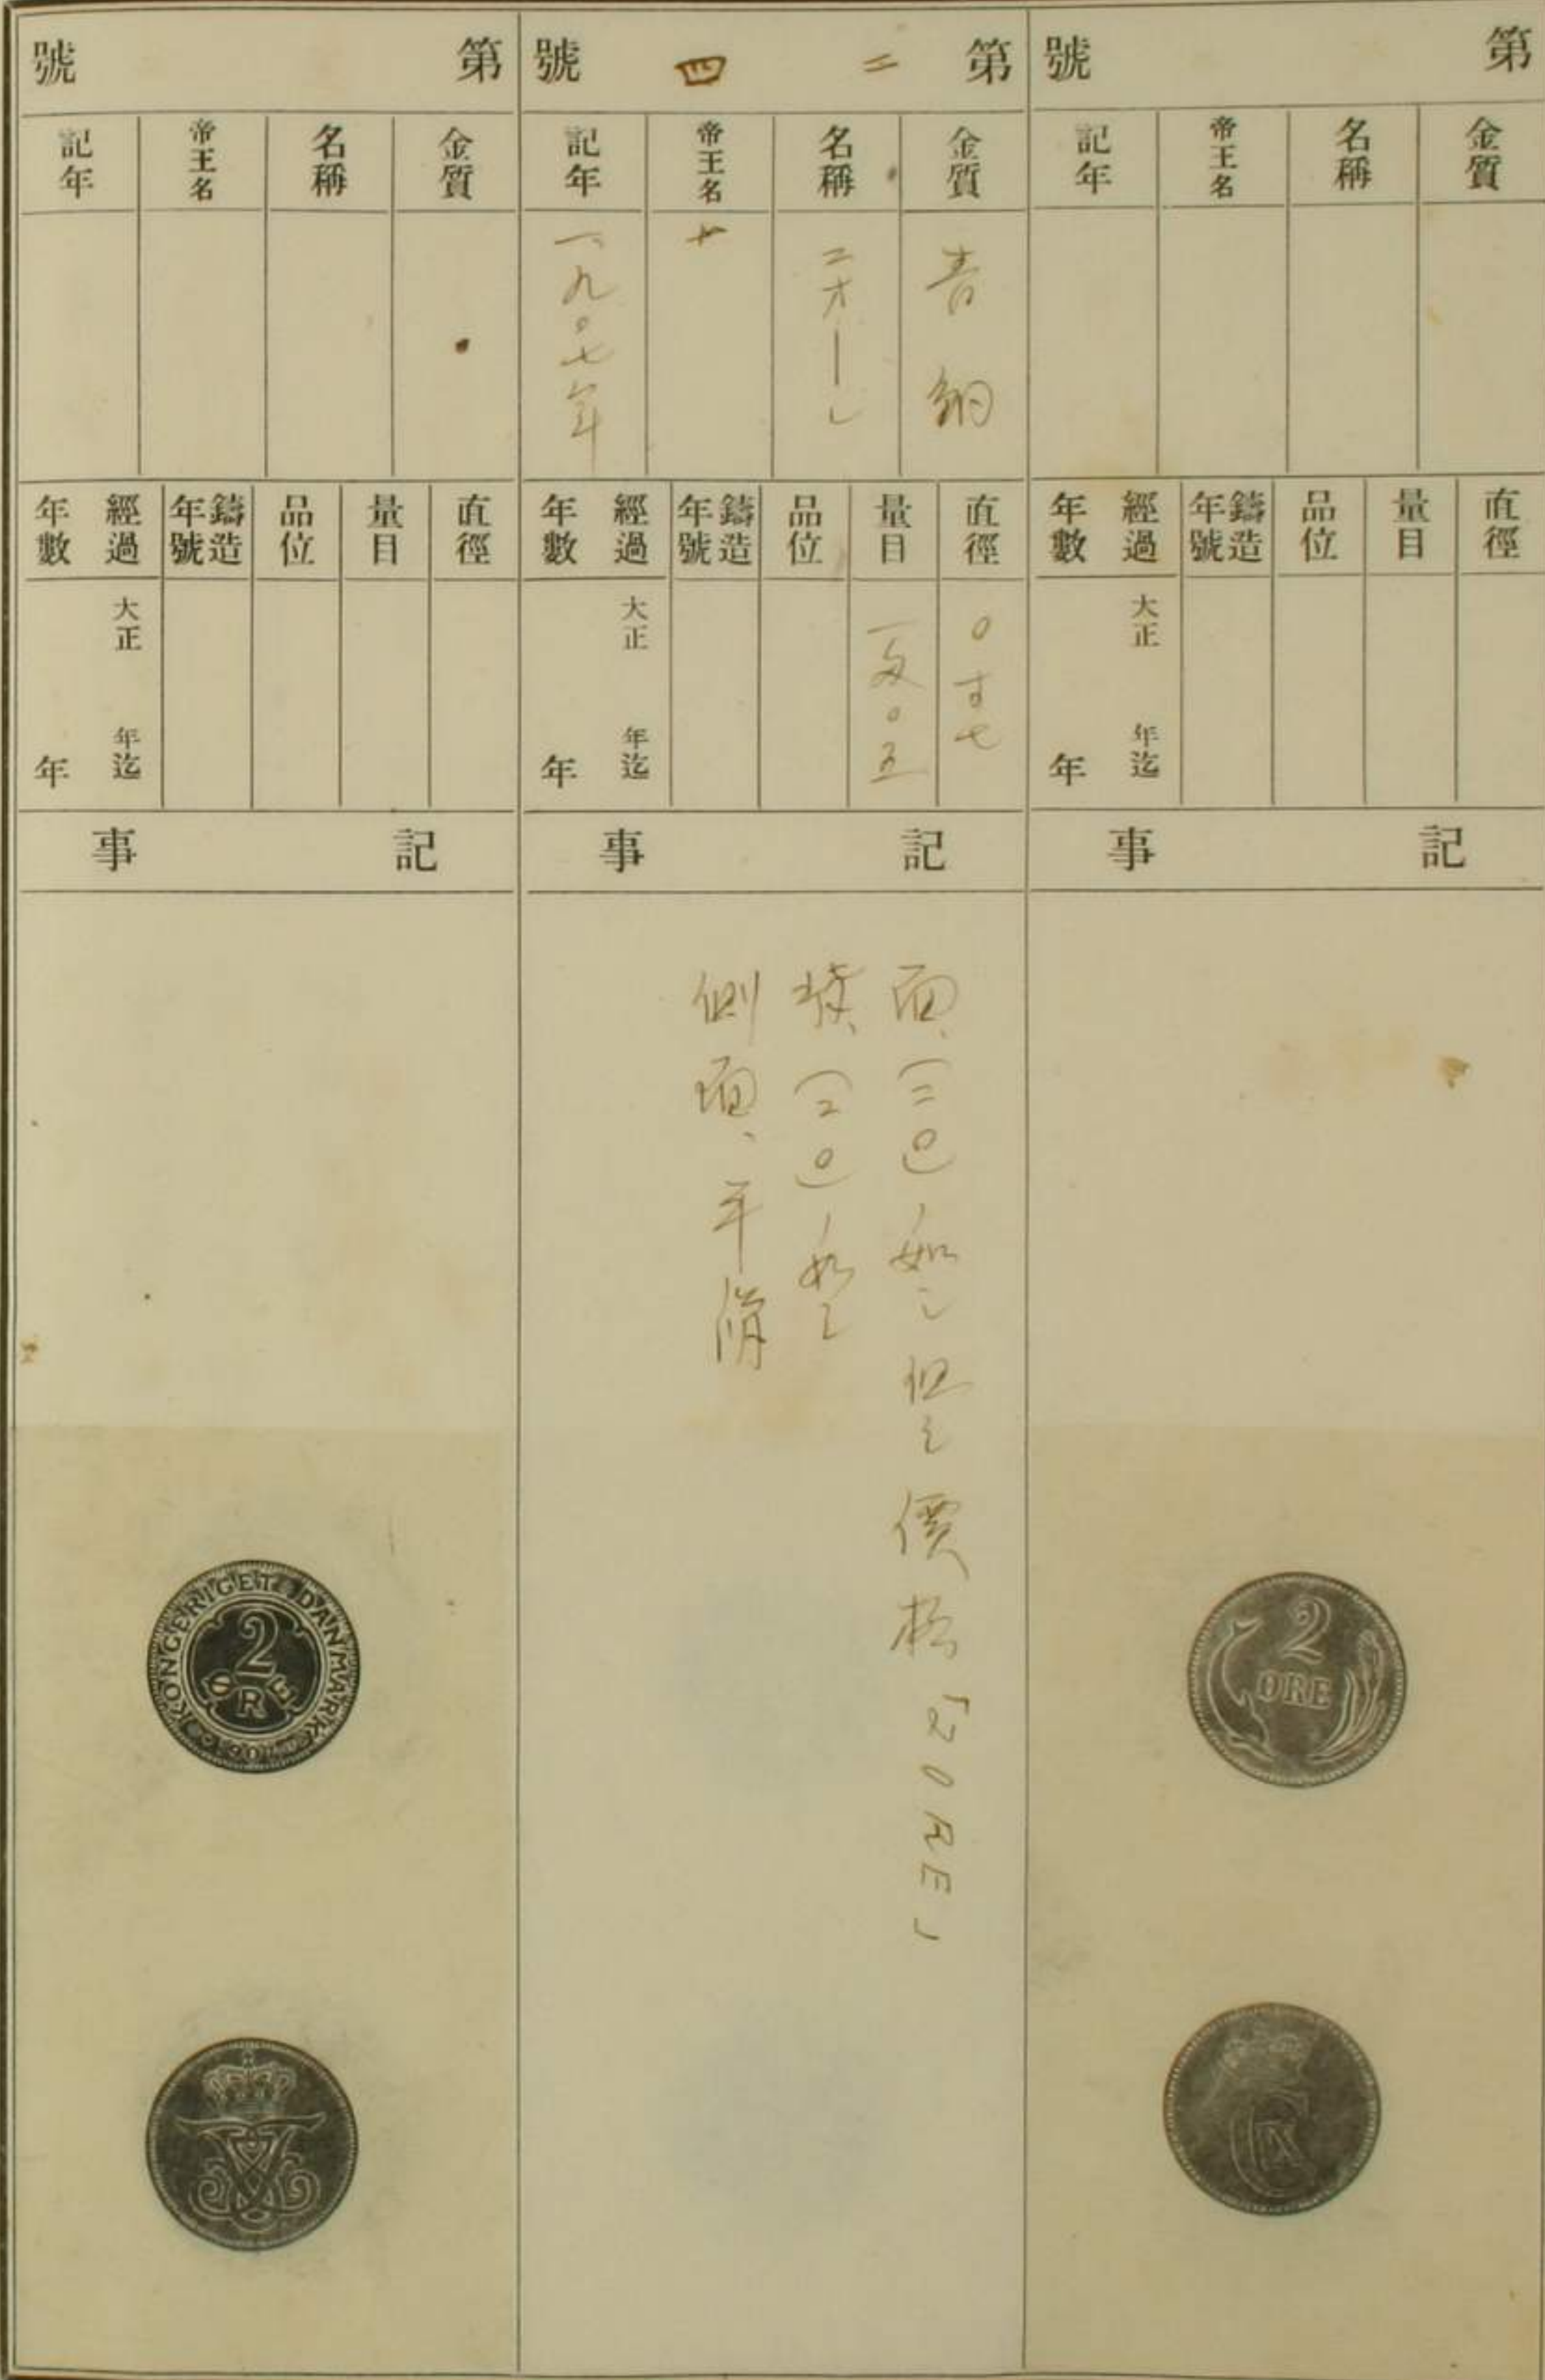 第 號
金質
名稱
帝王名
記年
直徑
量目
品位
鑄造年號
經過年數
大正 年迄
年
記事
2
ØRE
第二四號
金質
青銅
名稱
二オーレ
帝王名
記年
一、九〇七年
直徑
〇寸七
量目
一匁〇五
品位
鑄造年號
經過年數
大正 年迄
年
記事
面、(二〇)ノ如シ但シ價格「2 ORE」
背、(二〇)ノ如シ
側面、平滑
第 號
金質
名稱
帝王名
記年
直徑
量目
品位
鑄造年號
經過年數
大正 年迄
年
記事
KONGERIGET DANMARK
2
ØRE